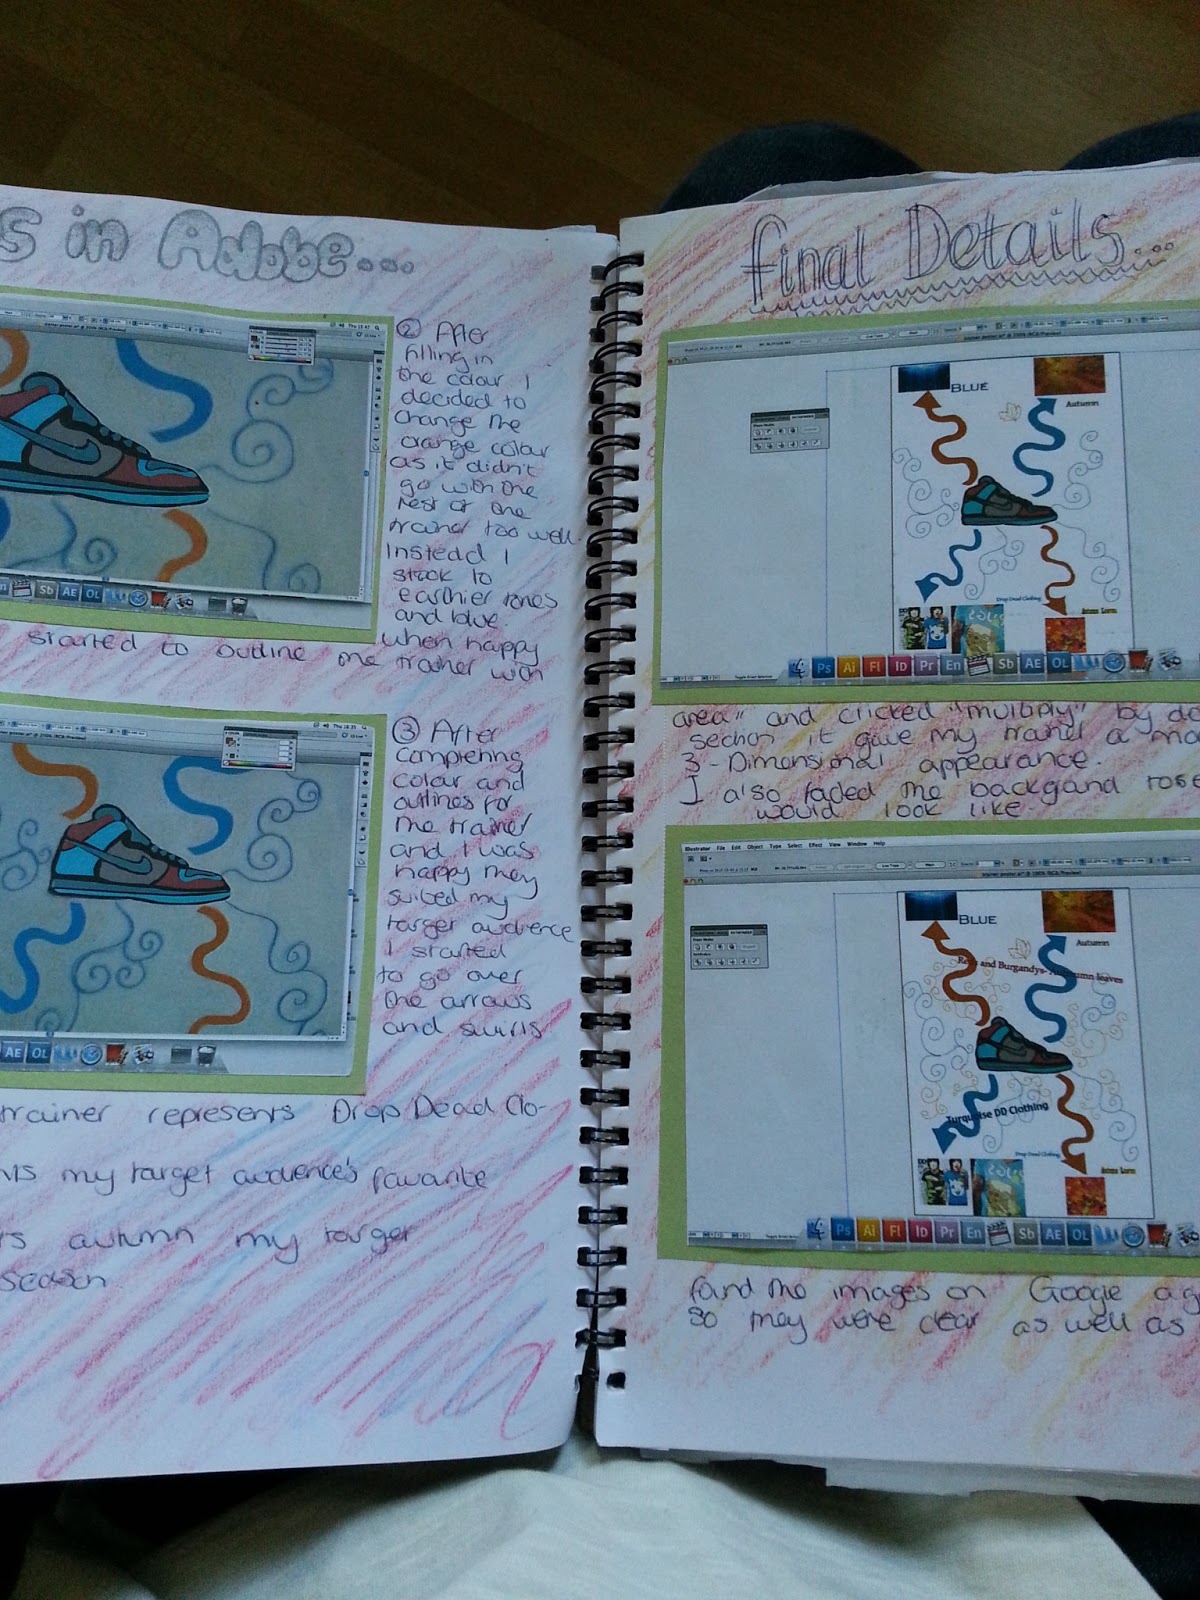 s in Adobe....
② After
filling in
the colour I
decided to
change the
orange colour
as it didn't
go with the
rest of the
trainer too well.
Instead I
stuck to
earthier tones
and blue.
when happy
started to outline the trainer with
③ After
completing
colour and
outlines for
the trainer
and I was
happy they
suited my
target audience
I started
to go over
the arrows
and swirls
trainer represents Drop Dead Clo-
my target audience's favourite
rs autumn my target
season
Final Details...
BLUE
Autumn
Drop Dead Clothing
Ps Ai Fl Id Pr En Sb AE OL
area" and clicked "multiply" by
section it gave my trainer a
3-Dimensional appearance.
I also faded the background
would look like
Illustrator File Edit Object Type Select Effect View Window Help
BLUE
Autumn
Reds and Burgandys- Autumn leaves
Turquoise DD Clothing
Drop Dead Clothing
Ps Ai Fl Id Pr En Sb AE OL
found the images on Google
so they were clear as well as